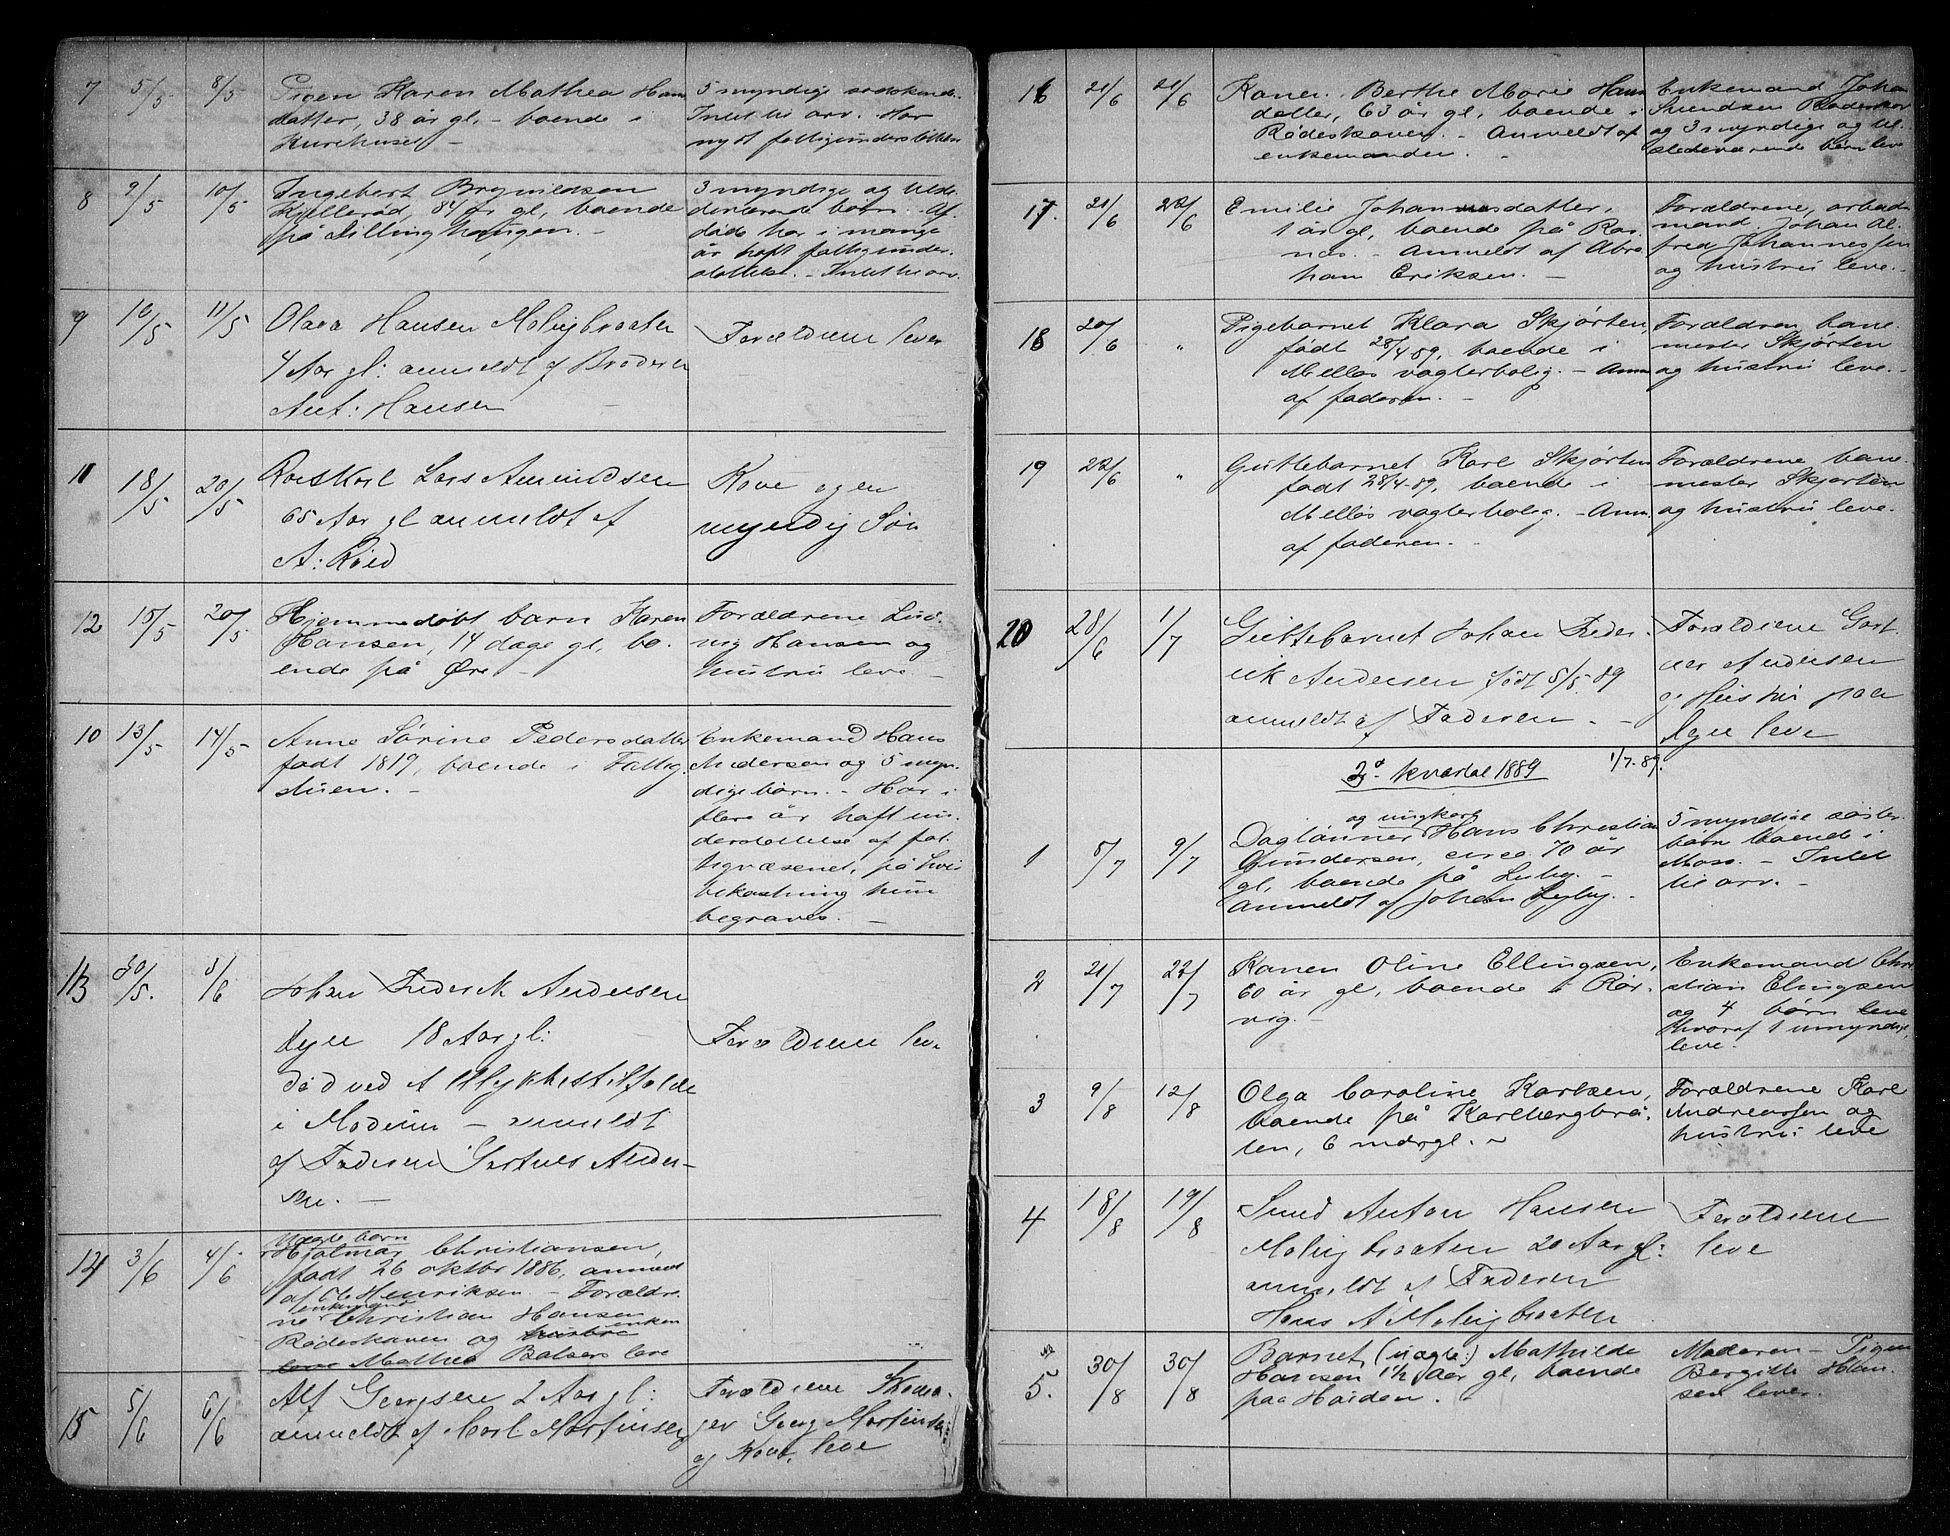 7 5/5 8/5 Pigen Karen Mathea Hans
datter, 38 år gl, - boende i
Kurehuset -
5 myndige sødskende.
Intet til arv. Har
nydt fattigunderstøttelse
8 9/5 10/5 Ingebert Brynildsen
Kjellerød, 84 år gl, boende
på Dillinghaugen. -
3 myndige og tilste-
deværende børn. - Af-
døde har i mange
år haft fattigunder-
støttelse. - Intet til arv.
9 10/5 11/5 Olava Hansen Molvigbraaten
4 Aar gl: anmeldt af Broderen
Ant: Hansen
Forældrene lever
11 18/5 20/5 Røeskarl Lars Amundsen
65 Aar gl anmeldt af
A: Røed
Kone og en
myndig Søn
12 15/5 20/5 Hjemmedøbt barn Karen
Hansen, 14 dage gl, bo-
ende på Øre -
Forældrene Lud-
vig Hansen og
hustru leve. -
10 13/5 14/5 Anne Sørine Pedersdatter
født 1819, boende i Fattig-
stuen. -
Enkemand Hans
Andersen og 5 myn-
dige børn. - Har i
flere år haft un-
derstøttelse af fat-
tigvæsenet, på hvis
bekostning hun
begraves. -
13 30/5. 3/6 Johan Frederik Andersen
Ryen 18 Aar gl:
død ved et Ulykkestilfælde
i Modum - anmeldt
af Faderen Andersen. -
Forældrene leve
14 3/6 4/6 Uægte barn
Hjalmar Christiansen,
født 26 oktbr 1886, anmeldt
af Ole Henriksen. - Forældre-
ne enkemand Christian Hansen
Rødeskoven og hustru enken
leve Mathea Balsers leve
15 5/6 6/6 Alf Georgsen 2 Aar gl:
anmeldt af Karl Mortinsen
Forældrene
Georg Mortinsen
og Kone, leve
16 21/6 21/6 Konen Berthe Marie Hans
datter, 63 år gl, boende i
Rødeskoven. - Anmeldt af
enkemanden. -
Enkemand Johan
Svendsen Rødeskov
og 3 myndige og til-
stedeværende børn leve
17. 21/6 22/6 Emilie Johannesdatter,
1 år gl, boende på Rør-
næs. - Anmeldt af Abra-
ham Eriksen. -
Forældrene, arbeids
mand Johan Al-
fred Johannessen
og hustru leve. -
18 20/6 " Pigebarnet Klara Skjørten,
født 28/4 89, boende i
Melløs vogterbolig. - Anm.
af faderen. -
Forældren bane-
mester Skjørten
og hustru leve. -
19 22/6 " Guttebarnet Karl Skjørten
født 28/4 89, boende i
Melløs vogterbolig. - Anm.
af faderen. -
Forældrene bane-
mester Skjørten
og hustru leve. -
20 28/6 1/7 Guttebarnet Johan Freder-
ik Andersen født 5/5. 89
anmeldt af Faderen. -
Forældrene Gart-
ner Andersen
og Hustru paa
Ryen leve
1/7. 89.
3d. kvartal 1889
1 5/7 9/7 og ungkarl
Daglønner Hans Christian
Gundersen, circa 70 år
gl, boende på Reiby. -
Anmeldt af Johan Reiby. -
5 myndige søster-
børn boende i
Moss. - Intet
til arv. -
2 21/7 22/7 Konen Oline Ellingsen,
60 år gl, boende i Rør-
vig. -
Enkemand Chri-
stian Elingsen
og 4 børn leve
hvoraf 1 umyndig,
leve.
3 9/8 12/8 Olga Caroline Karlsen,
boende på Karlbergbrå-
ten, 6 mdr gl. -
Forældrene Karl
Andreassen og
hustru leve
4 18/8 19/8 Smed Anton Hansen
Molvigbraaten 20 Aar gl:
anmeldt af Faderen
Hans A Molvigbraaten
Forældrene
leve
5. 30/8 30/8 Barnet (uægte:) Mathilde
Hansen 1½ Aar gl, boende
paa Høiden.
Moderen - Pigen
Bergitte Han-
sen lever.